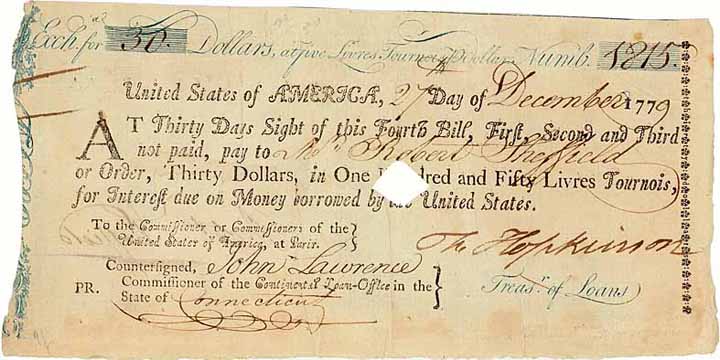 Exch. for 30. Dollars, at five Livres Tournois ℔ dollar. Numb. 1815.
United States of AMERICA, 27th Day of December 1779
AT Thirty Days Sight of this Fourth Bill, First, Second and Third
not paid, pay to Robert Sheffield
or Order, Thirty Dollars, in One Hundred and Fifty Livres Tournois,
for Interest due on Money borrowed by the United States.
To the Commissioner or Commissioners of the
United States of America, at Paris.
Countersigned, John Lawrence
PR. Commissioner of the Continental Loan-Office in the
State of Connecticut
Hopkinson
Treasr. of Loans